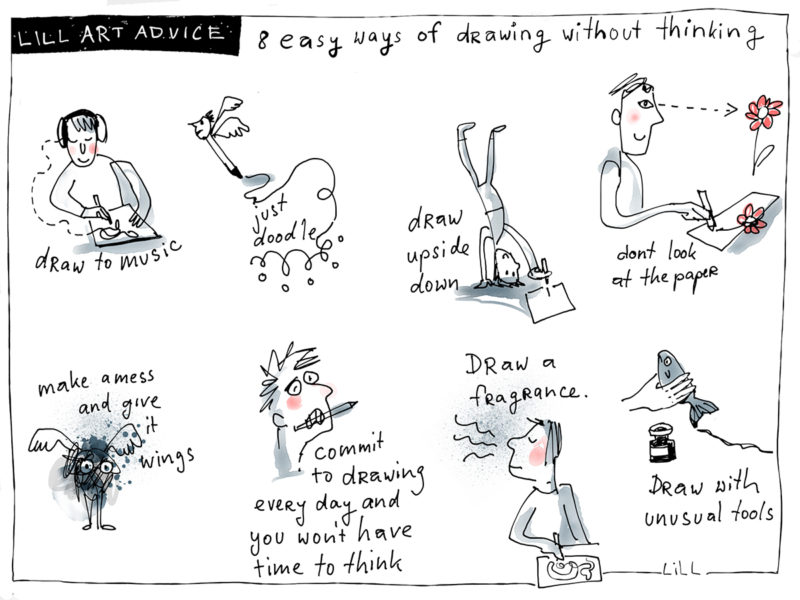 LILL ART ADVICE
8 easy ways of drawing without thinking
draw to music
just
doodle
draw
upside
down
dont look
at the paper
make a mess
and give
it
wings
commit
to drawing
every day and
you won't have
time to think
Draw a
fragrance.
Draw with
unusual tools
LiLL